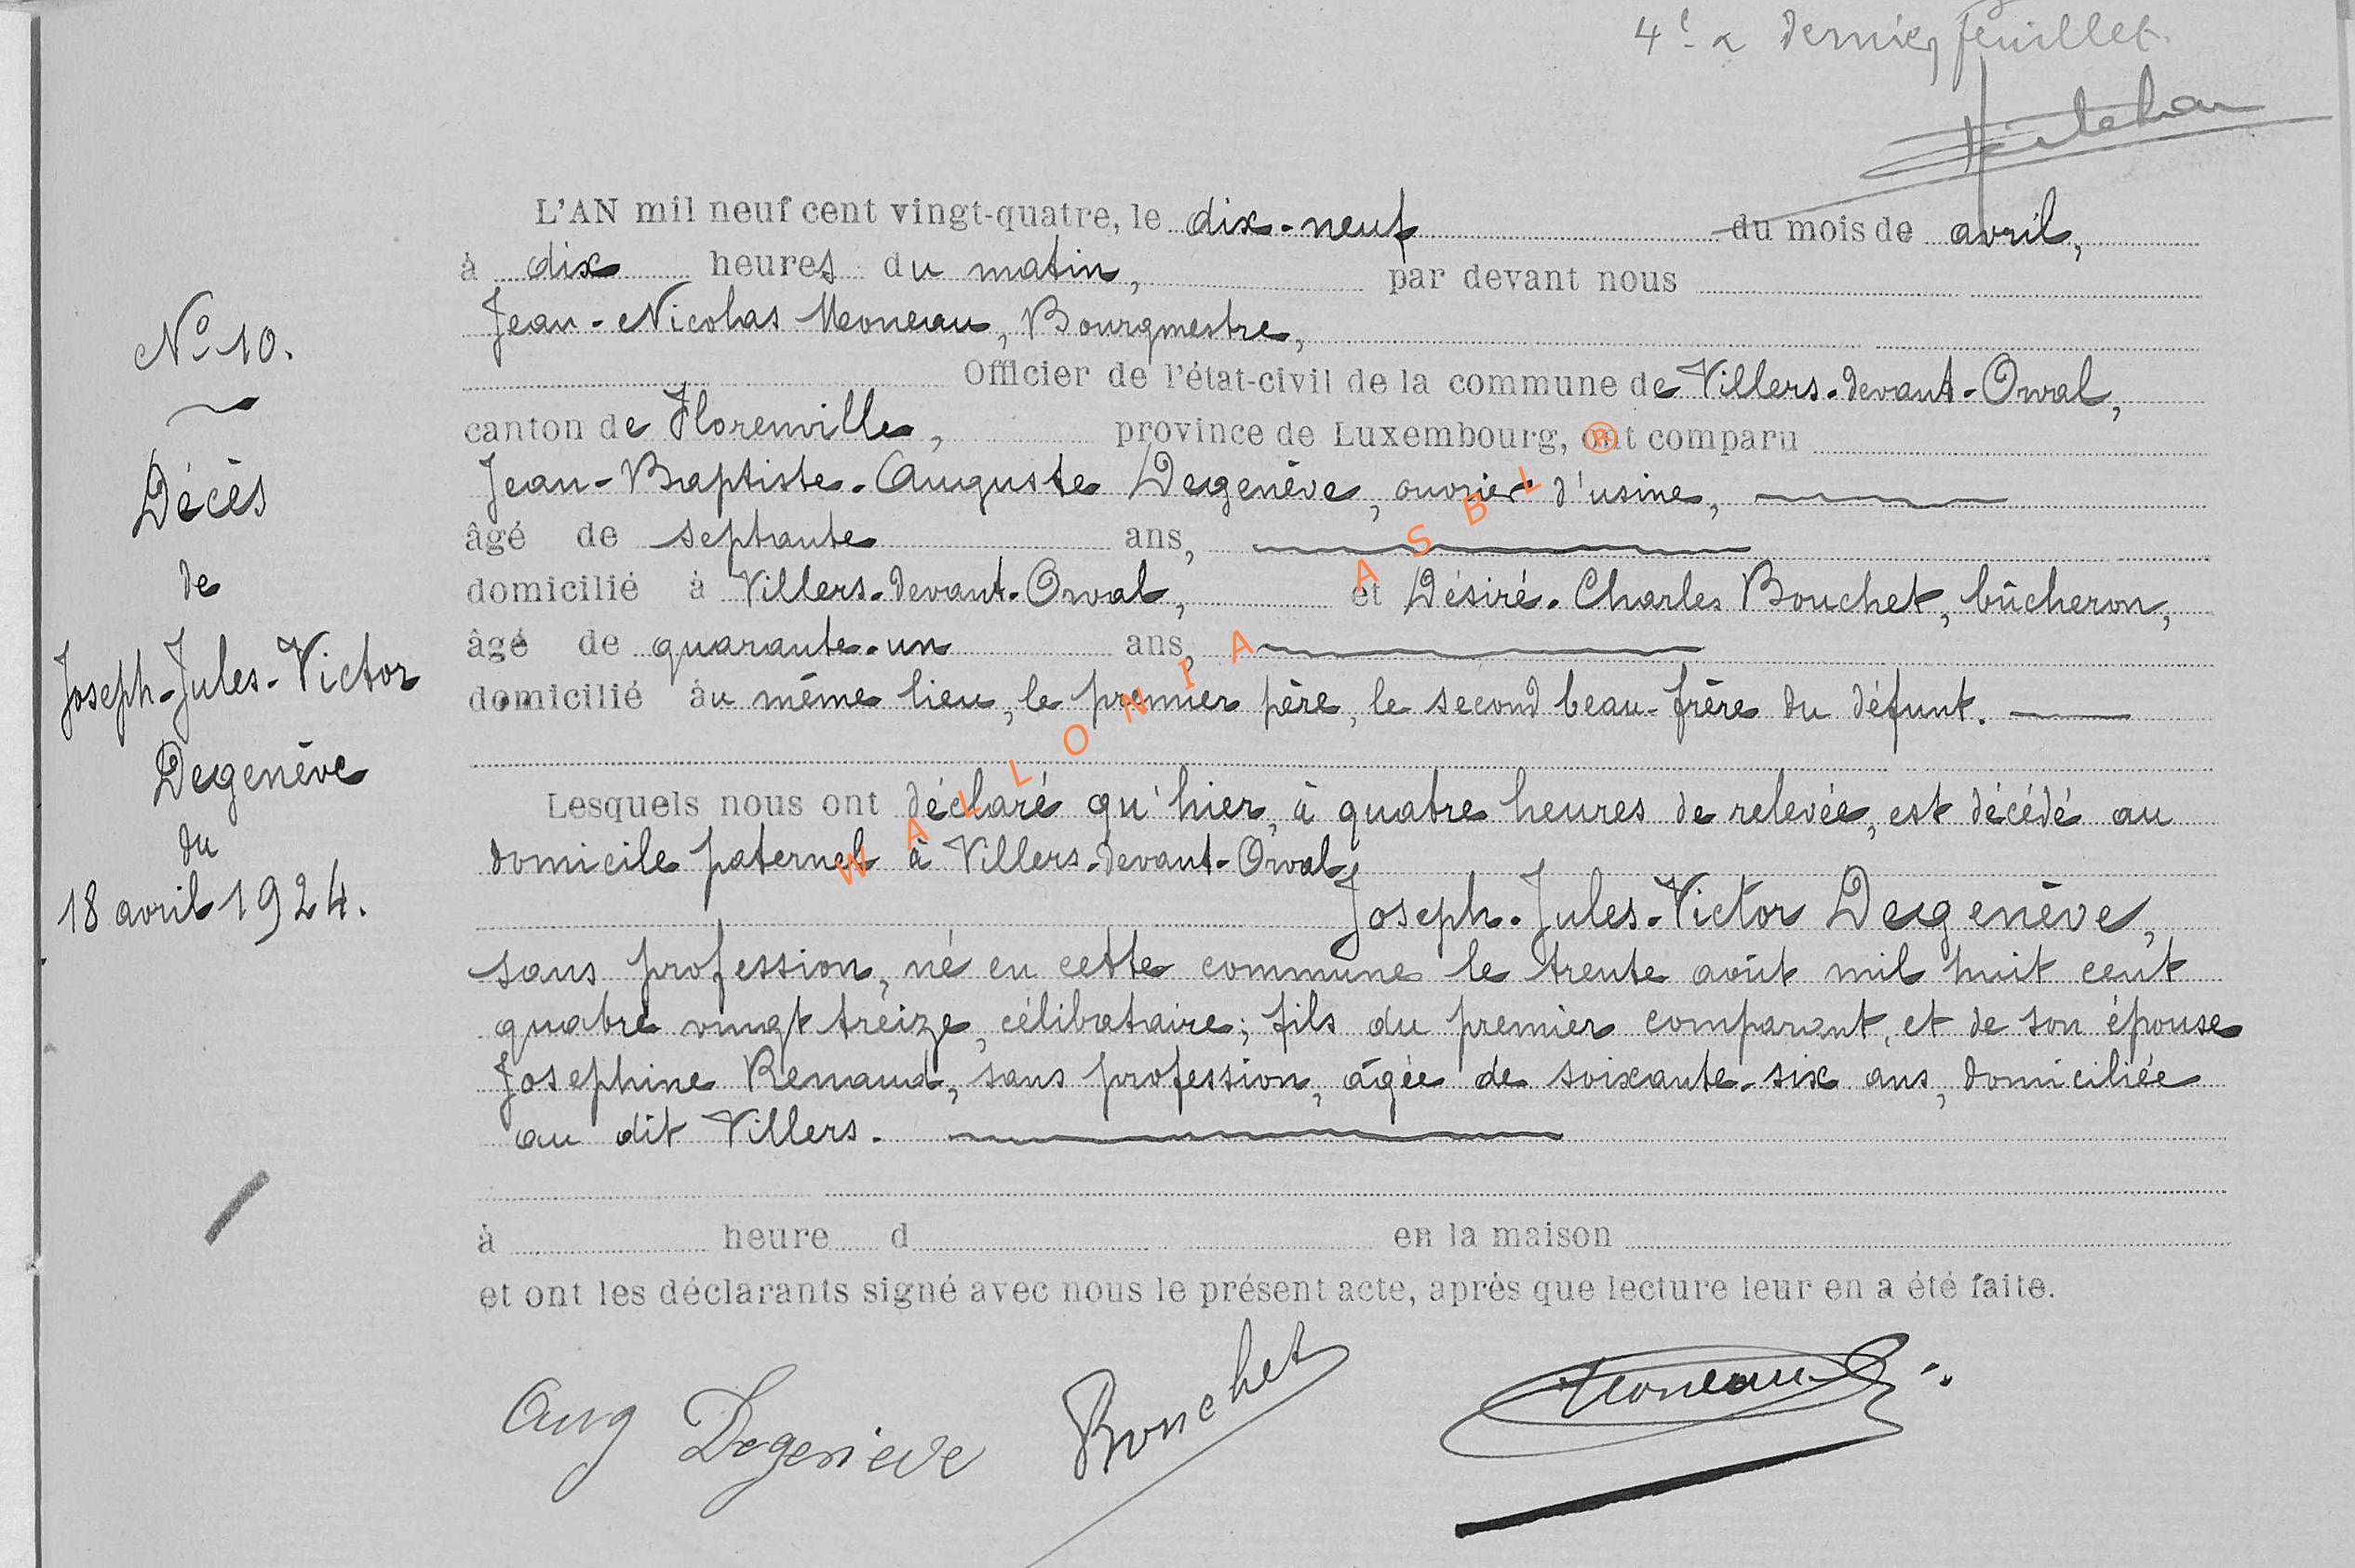 4e & dernier feuillet.
L'AN mil neuf cent vingt-quatre, le dix-neuf du mois de avril,
à dix heures du matin, par devant nous
Jean-Nicolas Moneau, Bourgmestre,
Officier de l'état-civil de la commune de Villers-devant-Orval,
canton de Florenville, province de Luxembourg, ont comparu
Jean-Baptiste-Auguste Degenève, ouvrier d'usine,
âgé de septante ans,
domicilié à Villers-devant-Orval, et Désiré-Charles Bouchet, bûcheron,
âgé de quarante-un ans,
domicilié au même lieu, le premier père, le second beau-frère du défunt.
Lesquels nous ont déclaré qu'hier, à quatre heures de relevée, est décédé au
domicile paternel à Villers-devant-Orval
Joseph-Jules-Victor Degenève,
sans profession, né en cette commune le trente août mil huit cent
quatre vingt treize, célibataire; fils du premier comparant, et de son épouse
Josephine Renaud, sans profession, âgée de soixante-six ans, domiciliée
au dit Villers.
à heure d en la maison
et ont les déclarants signé avec nous le présent acte, après que lecture leur en a été faite.
Aug Degenieve Bouchet Moneau
No 10.
Décès
de
Joseph-Jules-Victor
Degenève
du
18 avril 1924.
WALLONIA ASBL ®